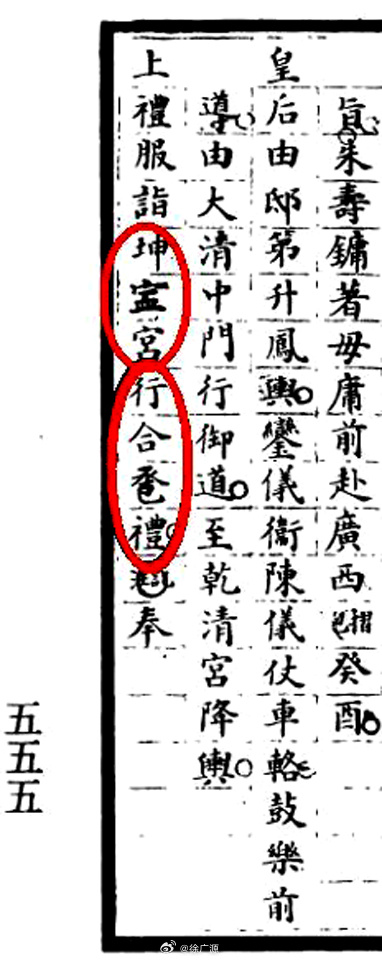 旨朱壽鏞著毋庸前赴廣西摺包癸酉
皇后由邸第升鳳輿鑾儀衛陳儀仗車輅鼓樂前
導由大清中門行御道至乾清宮降輿
上禮服詣坤寍宮行合巹禮奉
五五五
@徐广源